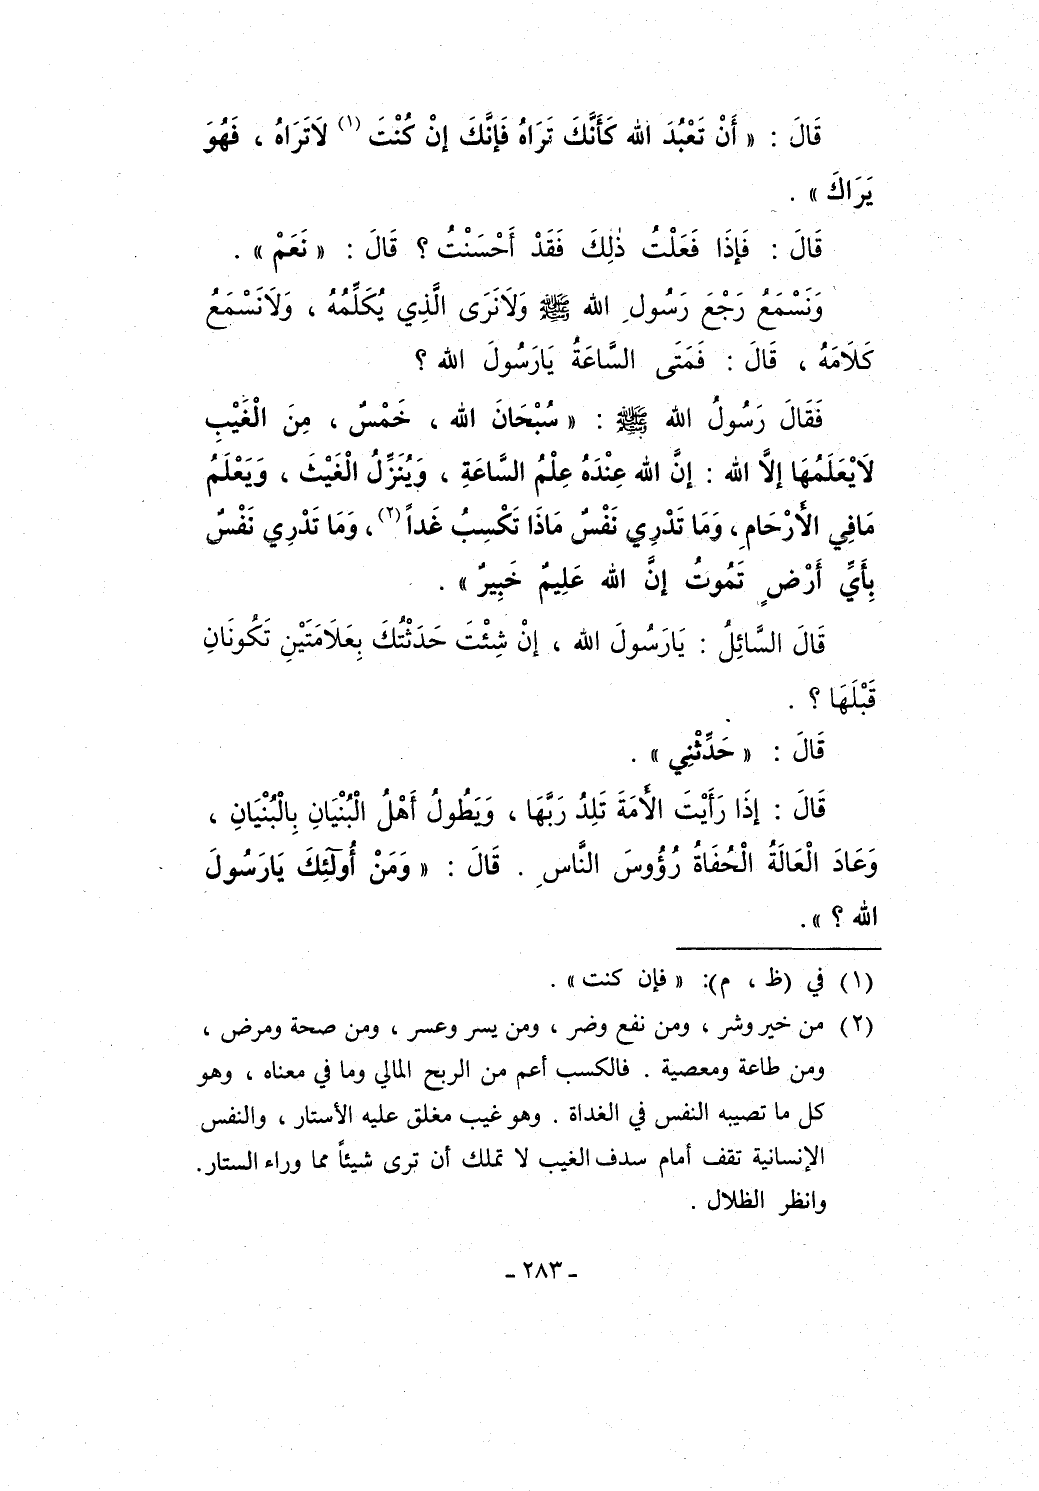 قَالَ : « أَنْ تَعْبُدَ الله كَأَنَّكَ تَرَاهُ فَإِنَّكَ إِنْ كُنْتَ (١) لَاتَرَاهُ ، فَهُوَ
يَرَاكَ » .
قَالَ : فَإِذَا فَعَلْتُ ذٰلِكَ فَقَدْ أَحْسَنْتُ ؟ قَالَ : « نَعَمْ » .
وَنَسْمَعُ رَجْعَ رَسُولِ الله ﷺ وَلَانَرَى الَّذِي يُكَلِّمُهُ ، وَلَانَسْمَعُ
كَلَامَهُ ، قَالَ : فَمَتَى السَّاعَةُ يَارَسُولَ الله ؟
فَقَالَ رَسُولُ الله ﷺ : « سُبْحَانَ الله ، خَمْسٌ ، مِنَ الْغَيْبِ
لَايْعَلَمُهَا إِلاَّ الله : إِنَّ الله عِنْدَهُ عِلْمُ السَّاعَةِ ، وَيُنَزِّلُ الْغَيْثَ ، وَيَعْلَمُ
مَافِي الأَرْحَامِ، وَمَا تَدْرِي نَفْسٌ مَاذَا تَكْسِبُ غَداً (٢)، وَمَا تَدْرِي نَفْسٌ
بِأَيِّ أَرْضٍ تَمُوتُ إِنَّ الله عَلِيمٌ خَبِيرٌ » .
قَالَ السَّائِلُ : يَارَسُولَ الله ، إِنْ شِئْتَ حَدَثْتُكَ بِعَلَامَتَيْنِ تَكُونَانِ
قَبْلَهَا ؟ .
قَالَ : « حَدِّثْنِي » .
قَالَ : إِذَا رَأَيْتَ الأَمَةَ تَلِدُ رَبَّهَا ، وَيَطُولُ أَهْلُ الْبُنْيَانِ بِالْبُنْيَانِ ،
وَعَادَ الْعَالَةُ الْحُفَاةُ رُؤُوسَ النَّاسِ . قَالَ : « وَمَنْ أُولَٓئِكَ يَارَسُولَ
الله ؟ ».
(١) في (ظ ، م): « فإن كنت » .
(٢) من خير وشر ، ومن نفع وضر ، ومن يسر وعسر ، ومن صحة ومرض ،
ومن طاعة ومعصية . فالكسب أعم من الربح المالي وما في معناه ، وهو
كل ما تصيبه النفس في الغداة . وهو غيب مغلق عليه الأستار ، والنفس
الإنسانية تقف أمام سدف الغيب لا تملك أن ترى شيئاً مما وراء الستار.
وانظر الظلال .
ـ ٢٨٣ ـ